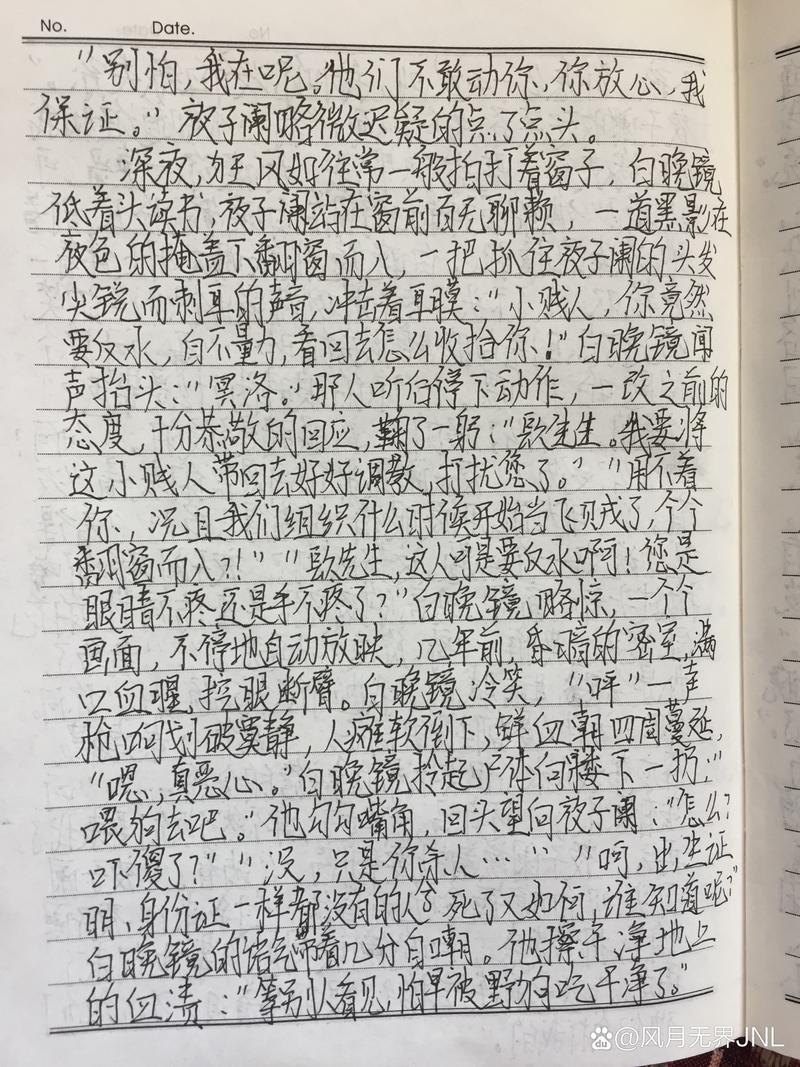 No. Date.
“别怕，我在呢。他们不敢动你，你放心，我
保证。”夜子阑略微迟疑的点了点头。
深夜，狂风如往常一般拍打着窗子，白晚镜
低着头读书，夜子阑站在窗前百无聊赖，一道黑影在
夜色的掩盖下翻窗而入，一把抓住夜子阑的头发
尖锐而刺耳的声音，冲击着耳膜：“小贱人，你竟然
要反水，自不量力，看回去怎么收拾你！”白晚镜闻
声抬头：“冥洛。”那人听后停下动作，一改之前的
态度，十分恭敬的回应，鞠了一躬：“歌先生。我要将
这小贱人带回去好好调教，打扰您了。”“用不着
你，况且我们组织什么时候开始当飞贼了，个个
翻窗而入？！”“歌先生，这人可是要反水啊！您是
眼睛不疼还是手不疼了？”白晚镜略惊，一个个
画面，不停地自动放映，几年前，昏暗的密室，满
口血腥，挖眼断臂。白晚镜冷笑，“呯”一声
枪响划破寂静，人瘫软倒下，鲜血朝四周蔓延，
“嗯，真恶心。”白晚镜拎起尸体向楼下一扔，“
喂狗去吧。”他勾勾嘴角，回头望向夜子阑：“怎么？
吓傻了？”“没，只是你杀人……”“呵，出生证
明，身份证一样都没有的人，死了又如何，谁知道呢？”
白晚镜的语气带着几分自嘲。他擦干净地上
的血渍：“等别人看见，怕早被野狗吃干净了。”
@风月无界JNL